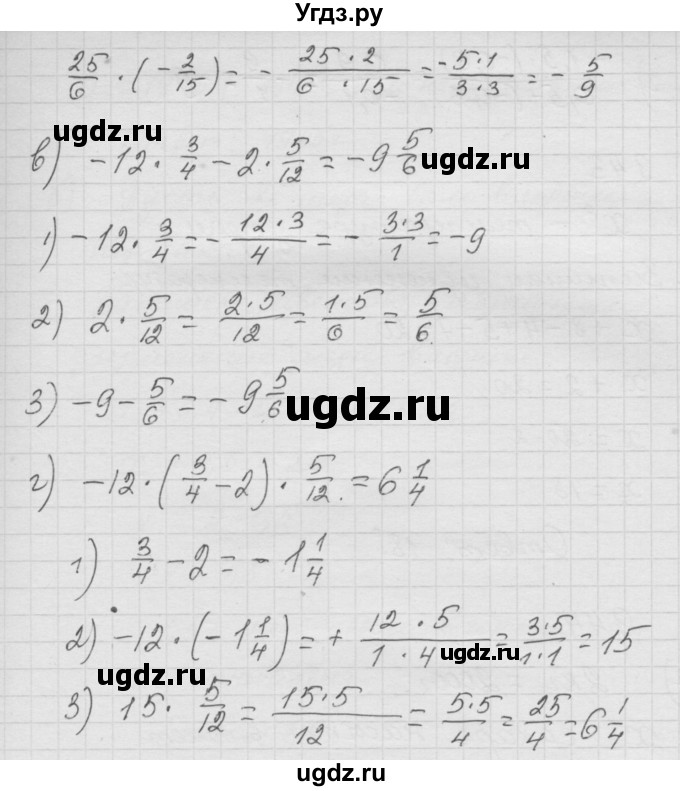 Угдз.ру
25/6 · (- 2/15) = - 25·2/6·15 = -5·1/3·3 = - 5/9
ugdz.ru
в) -12 · 3/4 - 2 · 5/12 = -9 5/6
ugdz.ru
1) -12 · 3/4 = - 12·3/4 = - 3·3/1 = -9
2) 2 · 5/12 = 2·5/12 = 1·5/6 = 5/6
3) -9 - 5/6 = -9 5/6
ugdz.ru
г) -12 · (3/4 - 2) · 5/12 = 6 1/4
1) 3/4 - 2 = - 1 1/4
2) -12 · (-1 1/4) = + 12·5/1·4 = 3·5/1·1 = 15
ugdz.ru
ugdz.ru
3) 15 · 5/12 = 15·5/12 = 5·5/4 = 25/4 = 6 1/4
ugdz.ru
ugdz.ru